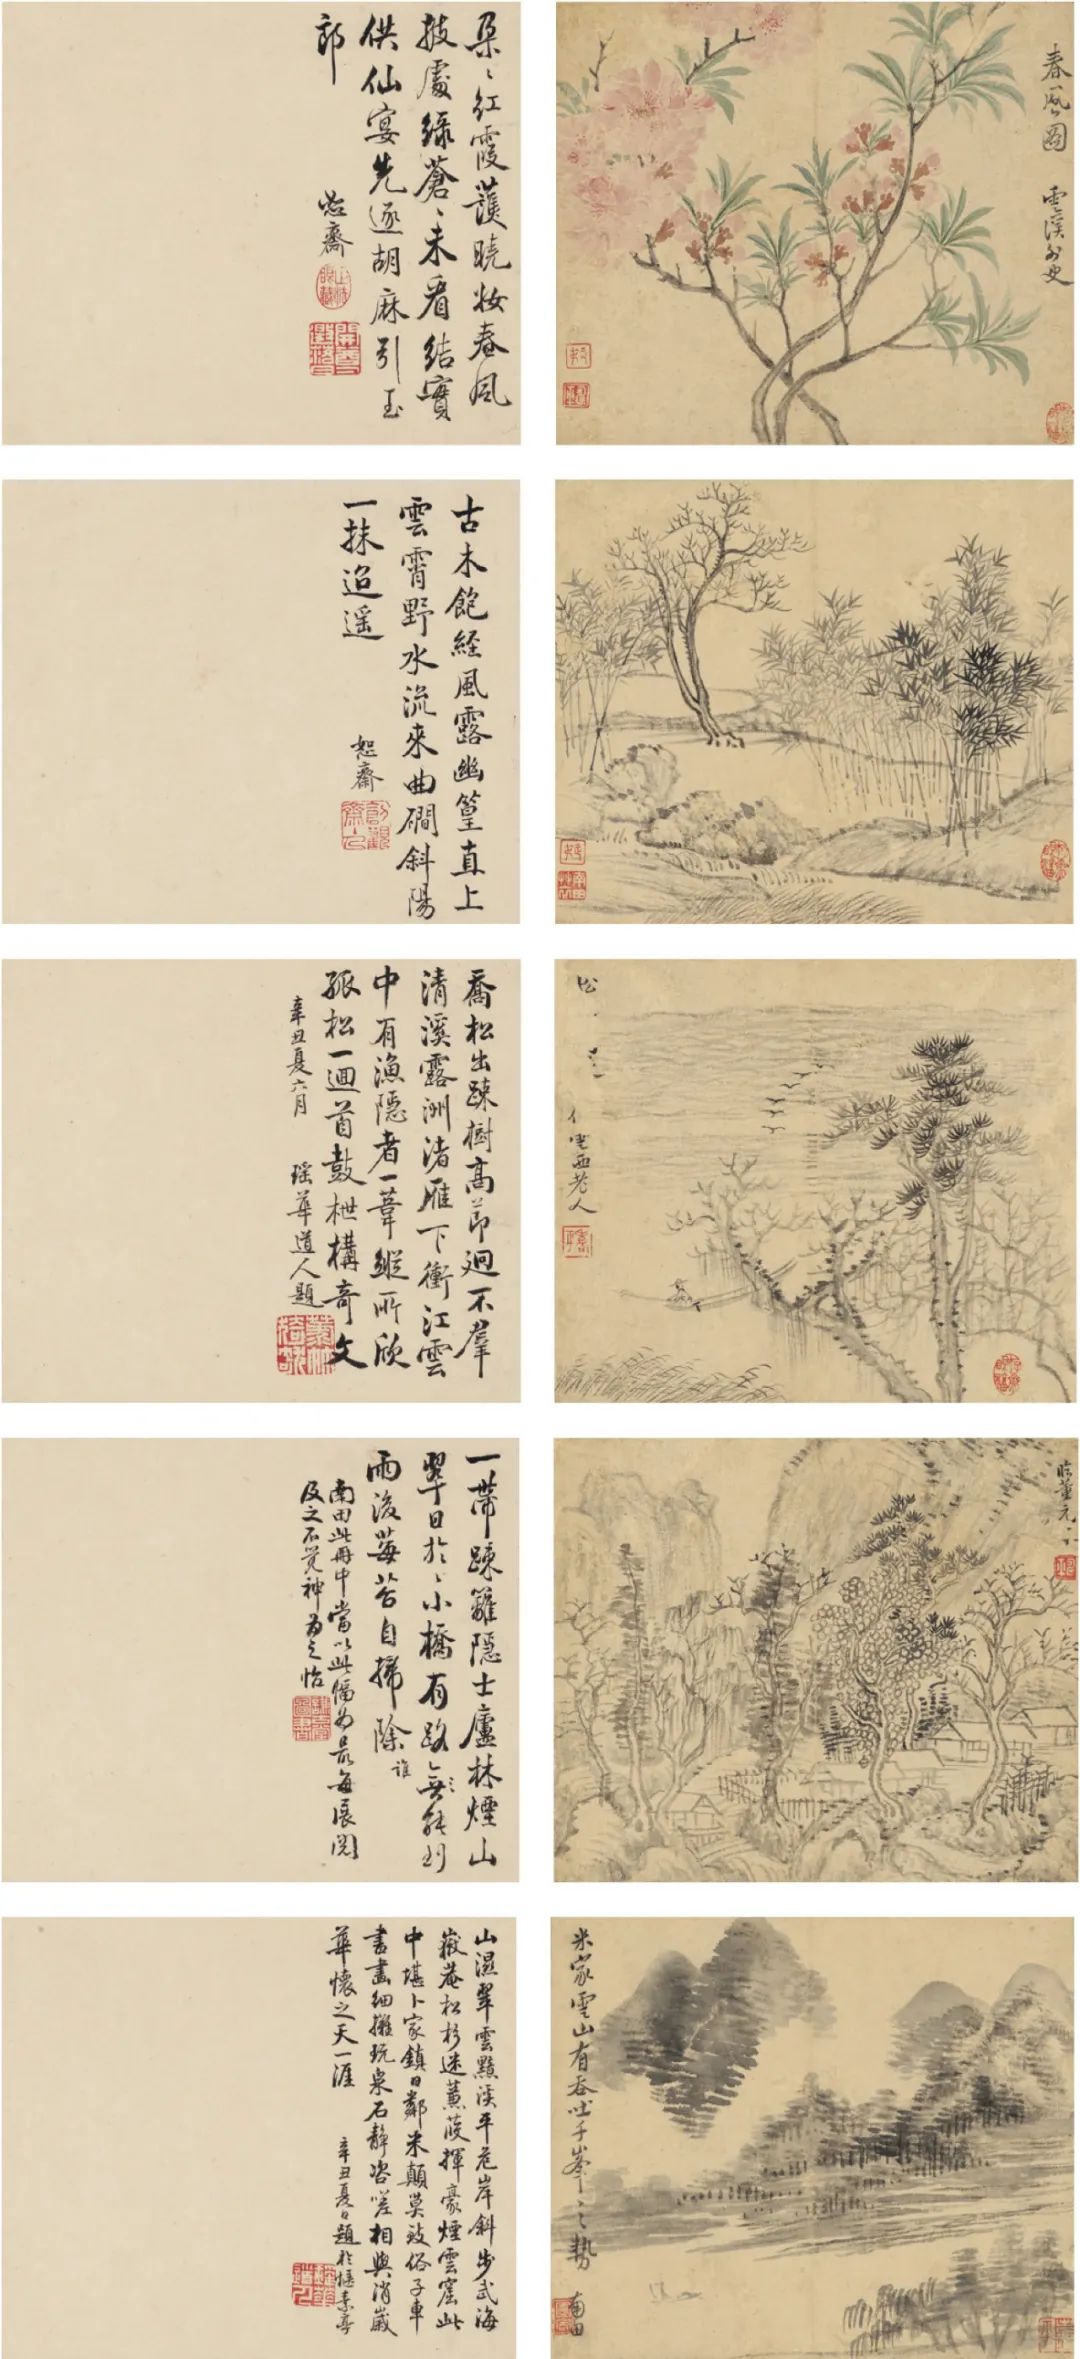 春風圖
雲溪外史
朵〻紅霞護曉妝春風
披處綠蒼〻未看結實
供仙宴先逐胡麻引玉
郎
恕齋
古木飽經風露幽篁直上
雲霄野水流來曲磵斜陽
一抹迢遥
恕齋
仁雲西老人
喬松出疎樹高節迥不羣
清溪露洲渚雁下衝江雲
中有漁隱者一葦縱所欣
孤松一迴首鼓枻構奇文
辛丑夏六月
瑶華道人題
臨董元
一帶疎籬隱士廬林煙山
翠日於〻小橋有路無能到
雨後莓苔自掃除
誰
南田此冊中當以此幅為最每展閱
及之不覺神為之怡
米家雲山有吞吐千峯之勢
南田
山濕翠雲黏溪平危岸斜步武海
嶽菴松杉迷蒹葭揮豪煙雲窟此
中堪卜家鎮日鄰米顛莫致俗子車
書畫細攤玩泉石靜咨嗟相與消歲
華懷之天一涯
辛丑夏日題於恆素亭